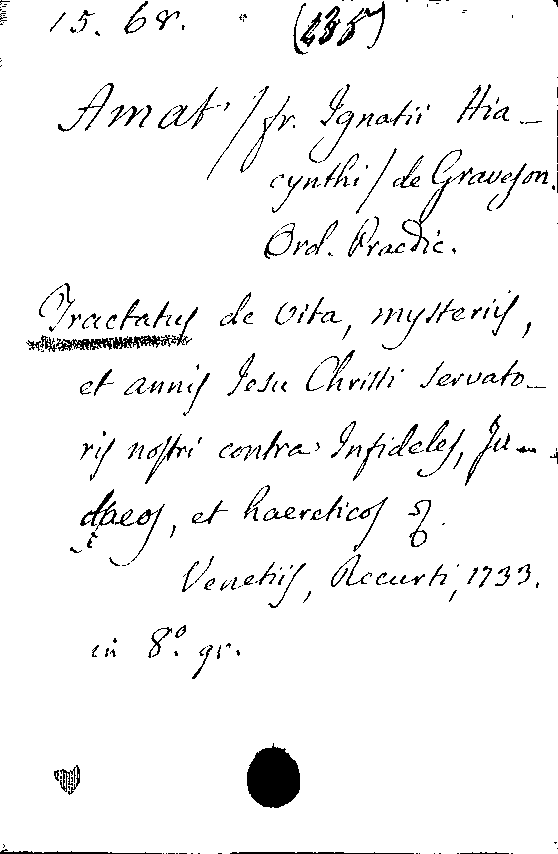 15. 68. (135)
Amat / fr. Ignatii Hia-
cynthi / de Graveson.
Ord. Praedic.
Tractatus de vita, mysteriis,
et annis Jesu Christi servato-
ris nostri contra Infideles, Ju-
daeos, et haereticos
Venetiis, Recurti, 1733.
in 8º. gr.